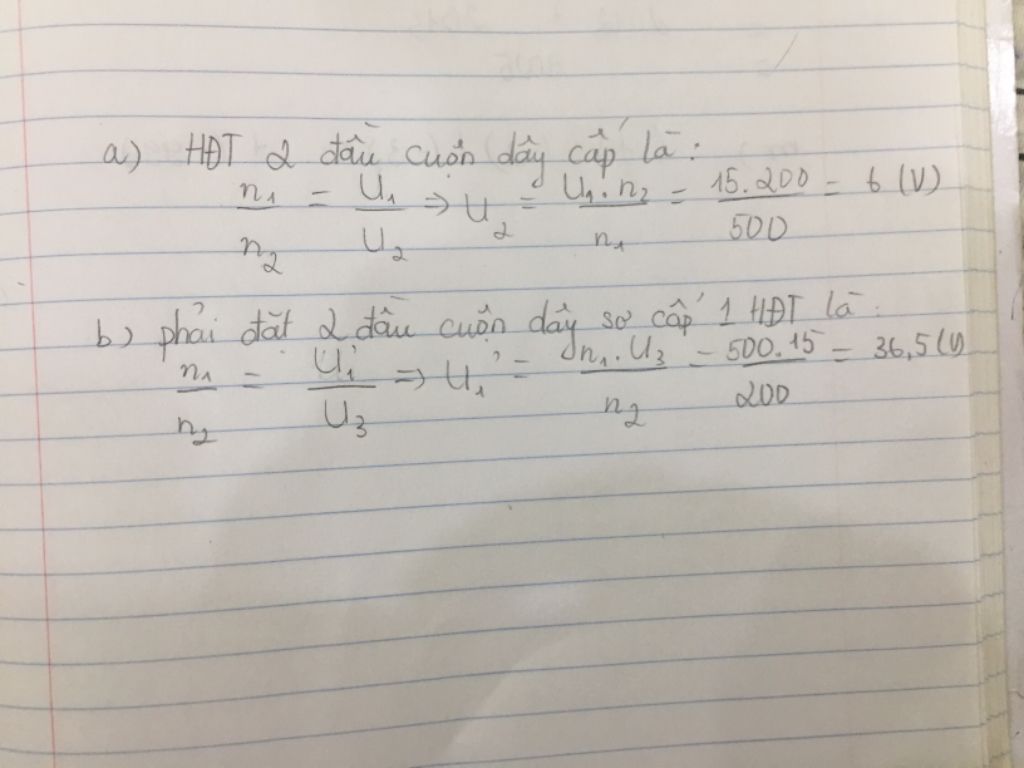 a) HĐT 2 đầu cuộn dây cấp là:
n₁/n₂ = U₁/U₂ ⇒ U₂ = U₁.n₂/n₁ = 15.200/500 = 6 (V)
b) phải đặt 2 đầu cuộn dây sơ cấp 1 HĐT là:
n₁/n₂ = U₁'/U₃ ⇒ U₁' = n₁.U₃/n₂ = 500.15/200 = 36,5(V)